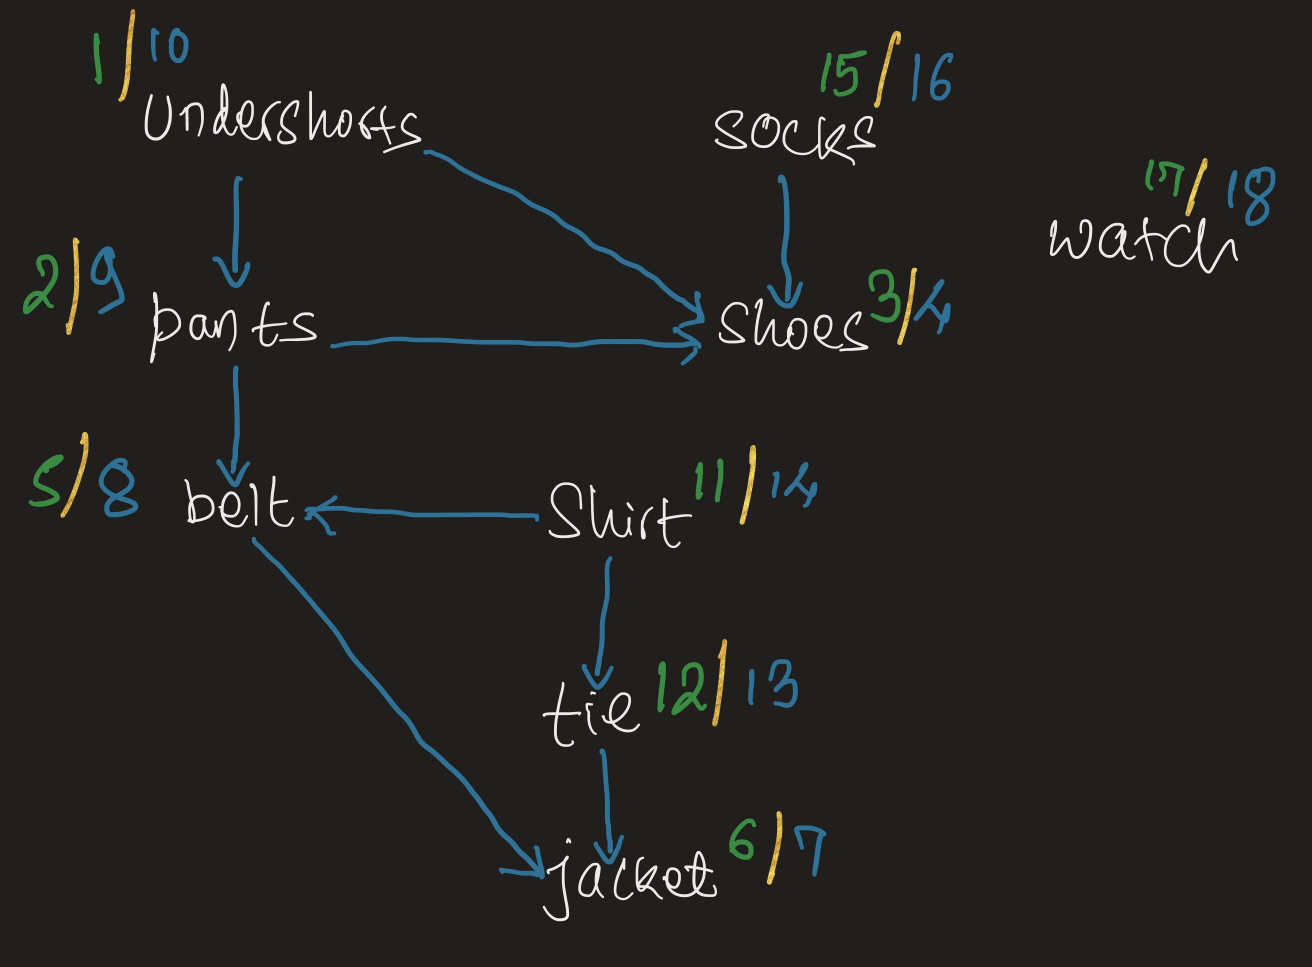 1/10
Undershorts
15/16
socks
17/18
watch
2/9
pants
shoes 3/4
5/8
belt
Shirt 11/14
tie 12/13
jacket 6/7